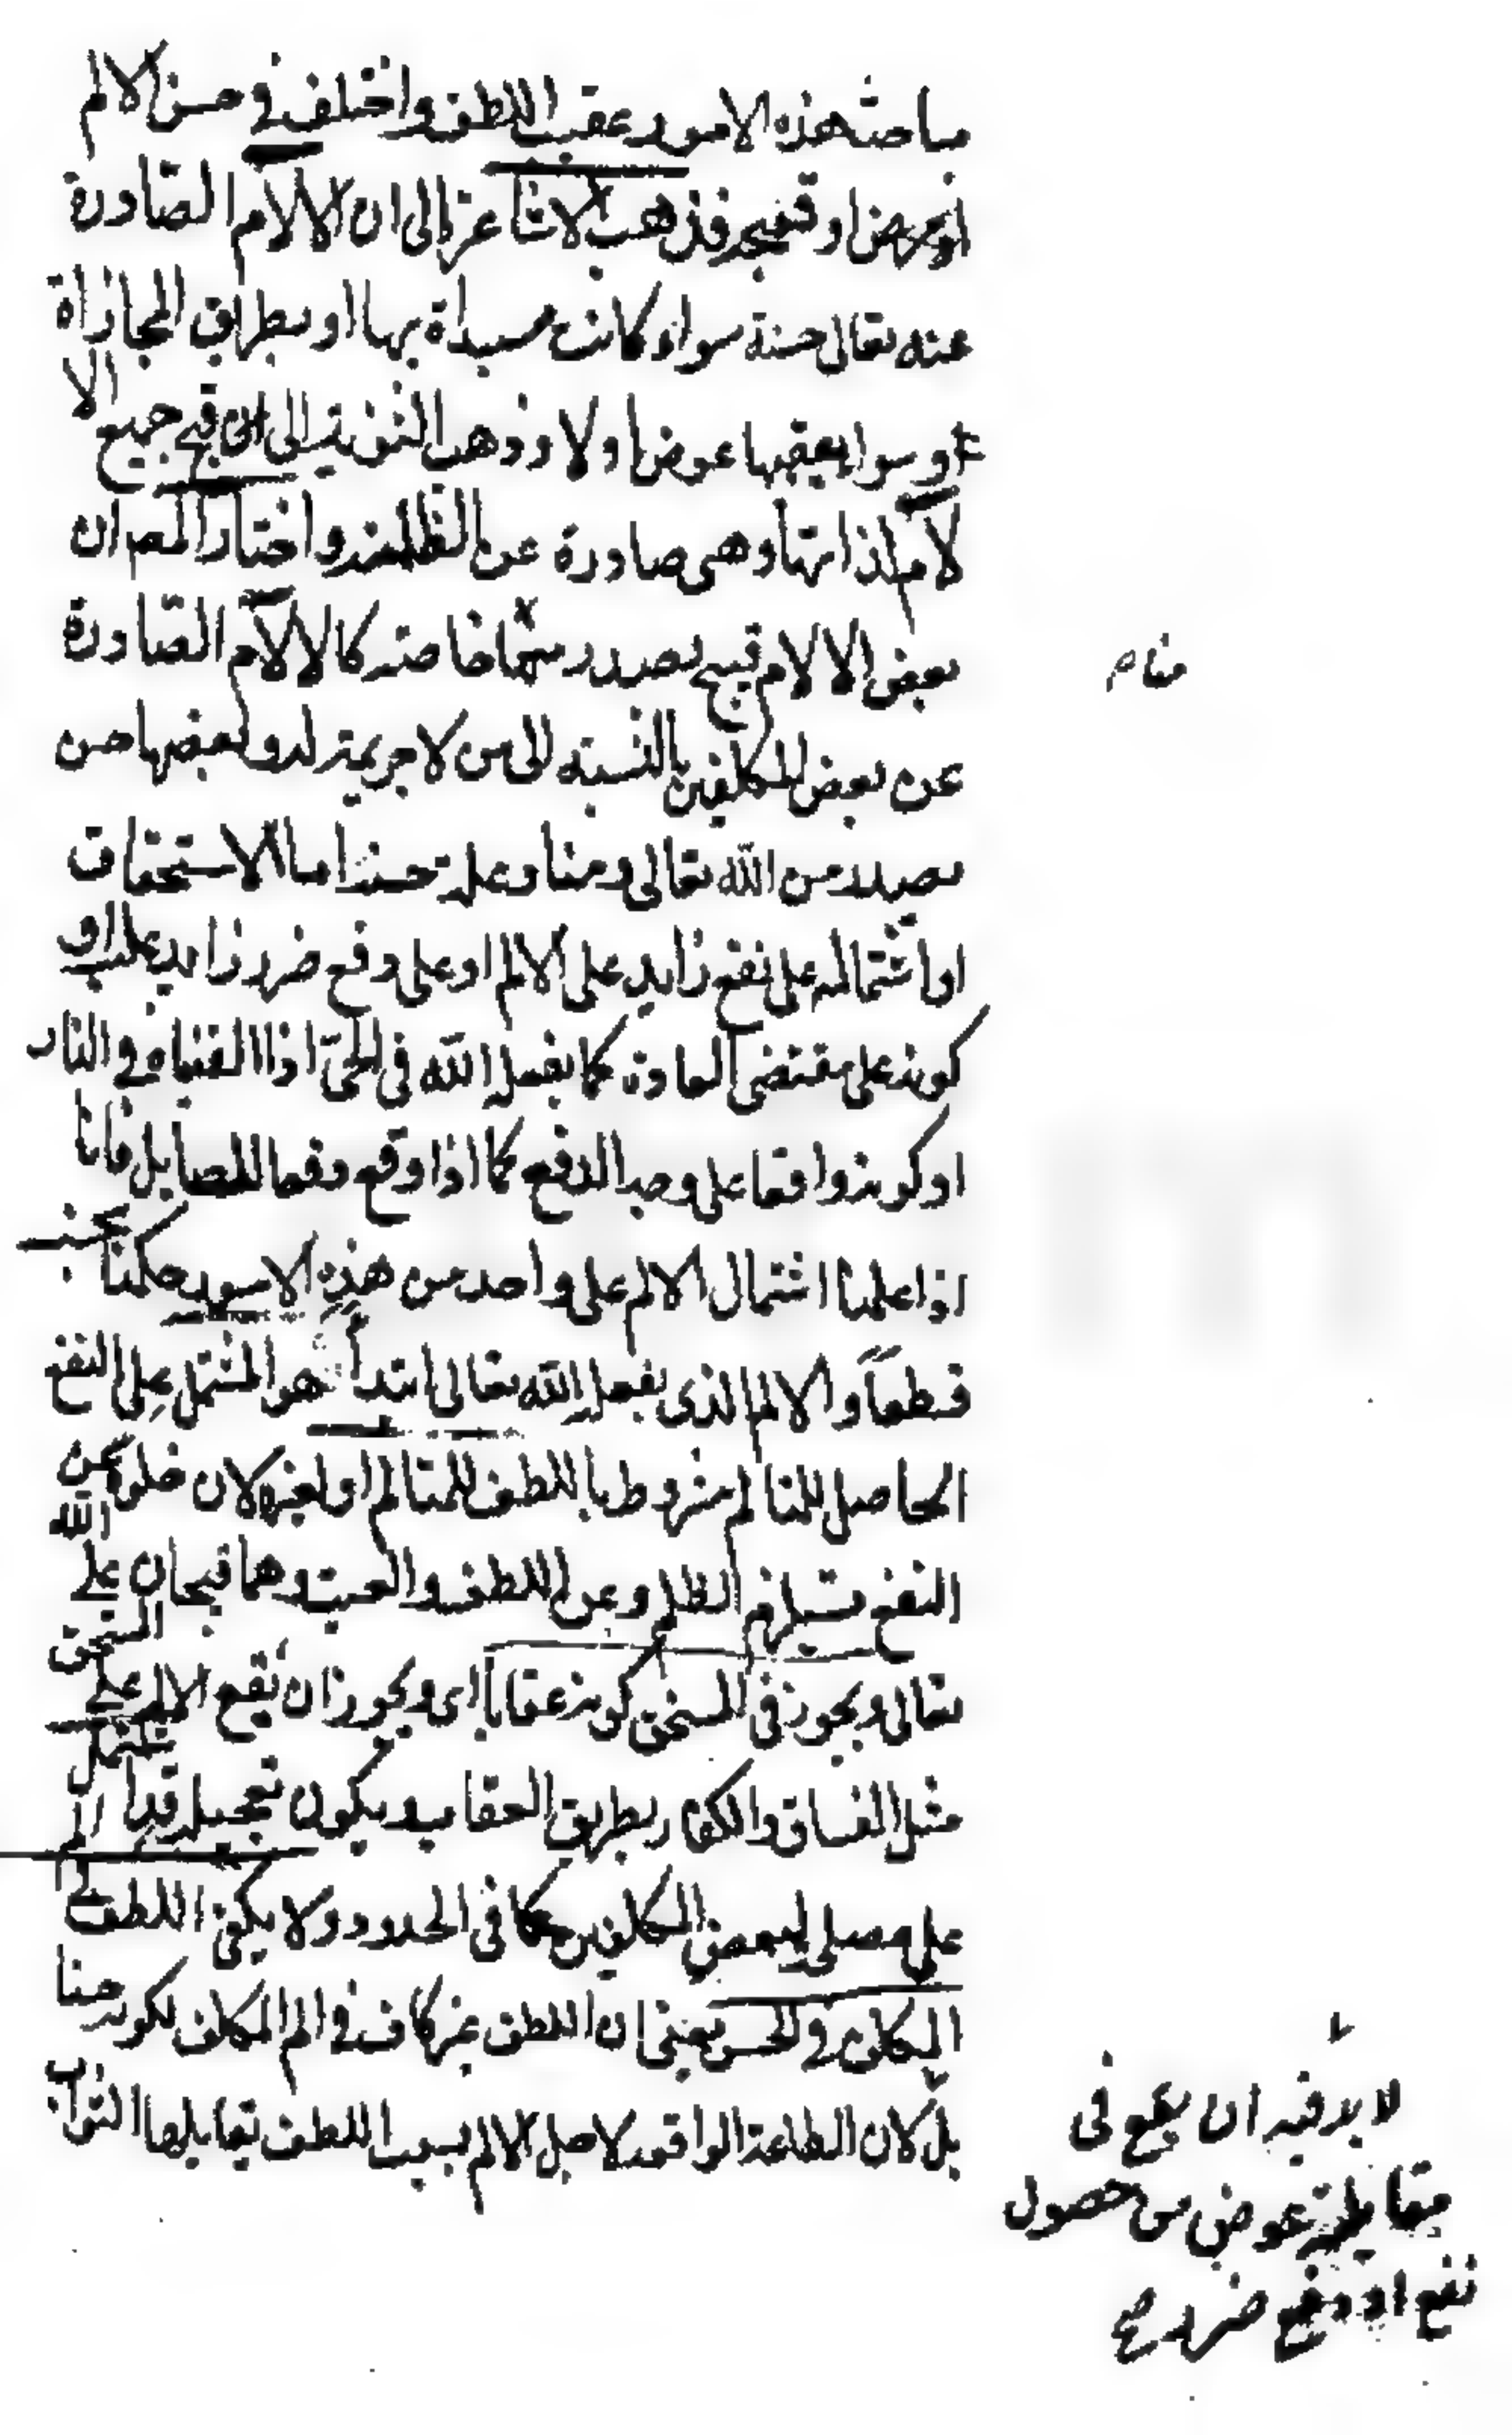 مباحث هذه الامور عقيب اللطف واختلف في حسن الالم
وقبحه فذهب الاشاعرة الى ان الالام الصادرة
عنه تعالى حسنة سواء كانت مبتداة بها او بطريق المجازاة
وسواء يعقبها عوض او لا وذهب الثنوية الى قبح جميع الا
لام لذاتها وهي صادرة عن الظلمة واختار المص ان
بعض الالام قبيح يصدر منا خاصة كالالام الصادرة
منا م
عن بعض المكلفين بالنسبة الى من لا جريمة له وبعضها حسن
يصدر من الله تعالى ومنا وعلة حسنه اما الاستحقاق
او اشتماله على نفع زايد على الالم او على دفع ضرر زايد عليه او
كونه على مقتضى العادة كما يفعله الله في الحي اذا القيناه في النار
او كونه واقعا على وجه الدفع كما اذا وقع دفعا للصايل فانا
اذا علمنا اشتمال الالم على واحد من هذه الامور حكمنا بحسنه
قطعاً والالم الذي يفعله الله تعالى ابتداً هو المشتمل على النفع
الحاصل للمتالم مشروط باللطف للمتالم او لغيره لان خلوه عن
النفع يستلزم الظلم وعن اللطف العبث وهما قبيحان على الله
تعالى ويجوز في المستحق كونه عقابا اى ويجوز ان يقع الالم على المستحق
مثل الفساق والكفار بطريق العقاب ويكون تعجيله قد اشتمل
على مصلحة لبعض المكلفين كما في الحدود ولا يكفي اللطف في الم
المكلف في الحسن يعني ان اللطف غير كاف في الم المكلف لكونه حسنا
بل لان الطاعة الواقعة لاجل الالم بسبب اللطف تقابلها الثواب
لا بد فيه ان يقع في
مقابلته عوض من حصول
نفع او دفع ضرر صح